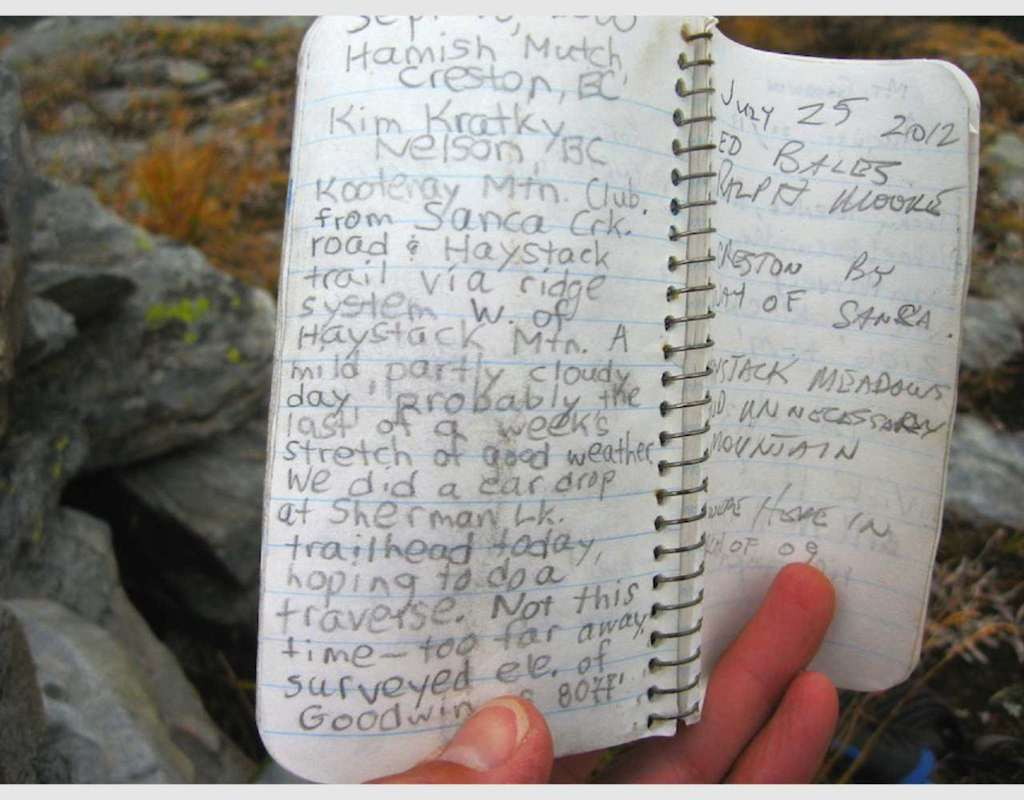 Hamish Mutch
Creston, BC
Kim Kratky
Nelson, BC
Kootenay Mtn. Club.
from Sanca Crk.
road & Haystack
trail via ridge
system W. of
Haystack Mtn. A
mild, partly cloudy
day, probably the
last of a week's
stretch of good weather.
We did a car drop
at Sherman Lk.
trailhead today,
hoping to do a
traverse. Not this
time - too far away.
surveyed ele. of
Goodwin 8077'
July 25 2012
ED BALES
RALPH MOORE
CRESTON BY
WAY OF SANCA.
MEADOWS
UNNECESSARY
MOUNTAIN
IN
OF 09